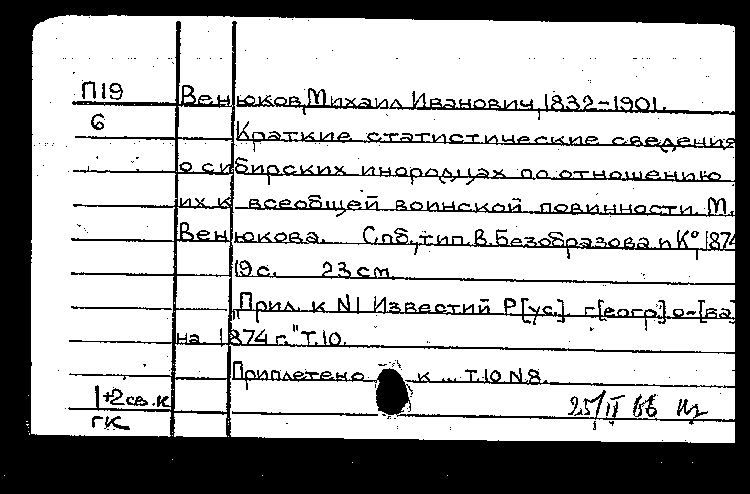 П19 Венюков, Михаил Иванович, 1832-1901.
6 Краткие статистические сведения
о сибирских инородцах по отношению
их к всеобщей воинской повинности. М.
Венюкова. Спб., тип. В. Безобразова и К° 1874
19 с. 23 см.
"Прил. к N1 Известий Р[ус.]. г[еогр]. о-[ва]
на 1874 г." Т.10.
Приплетено к ... т.10 N8.
1+2 св. к
25/II 66
ГК